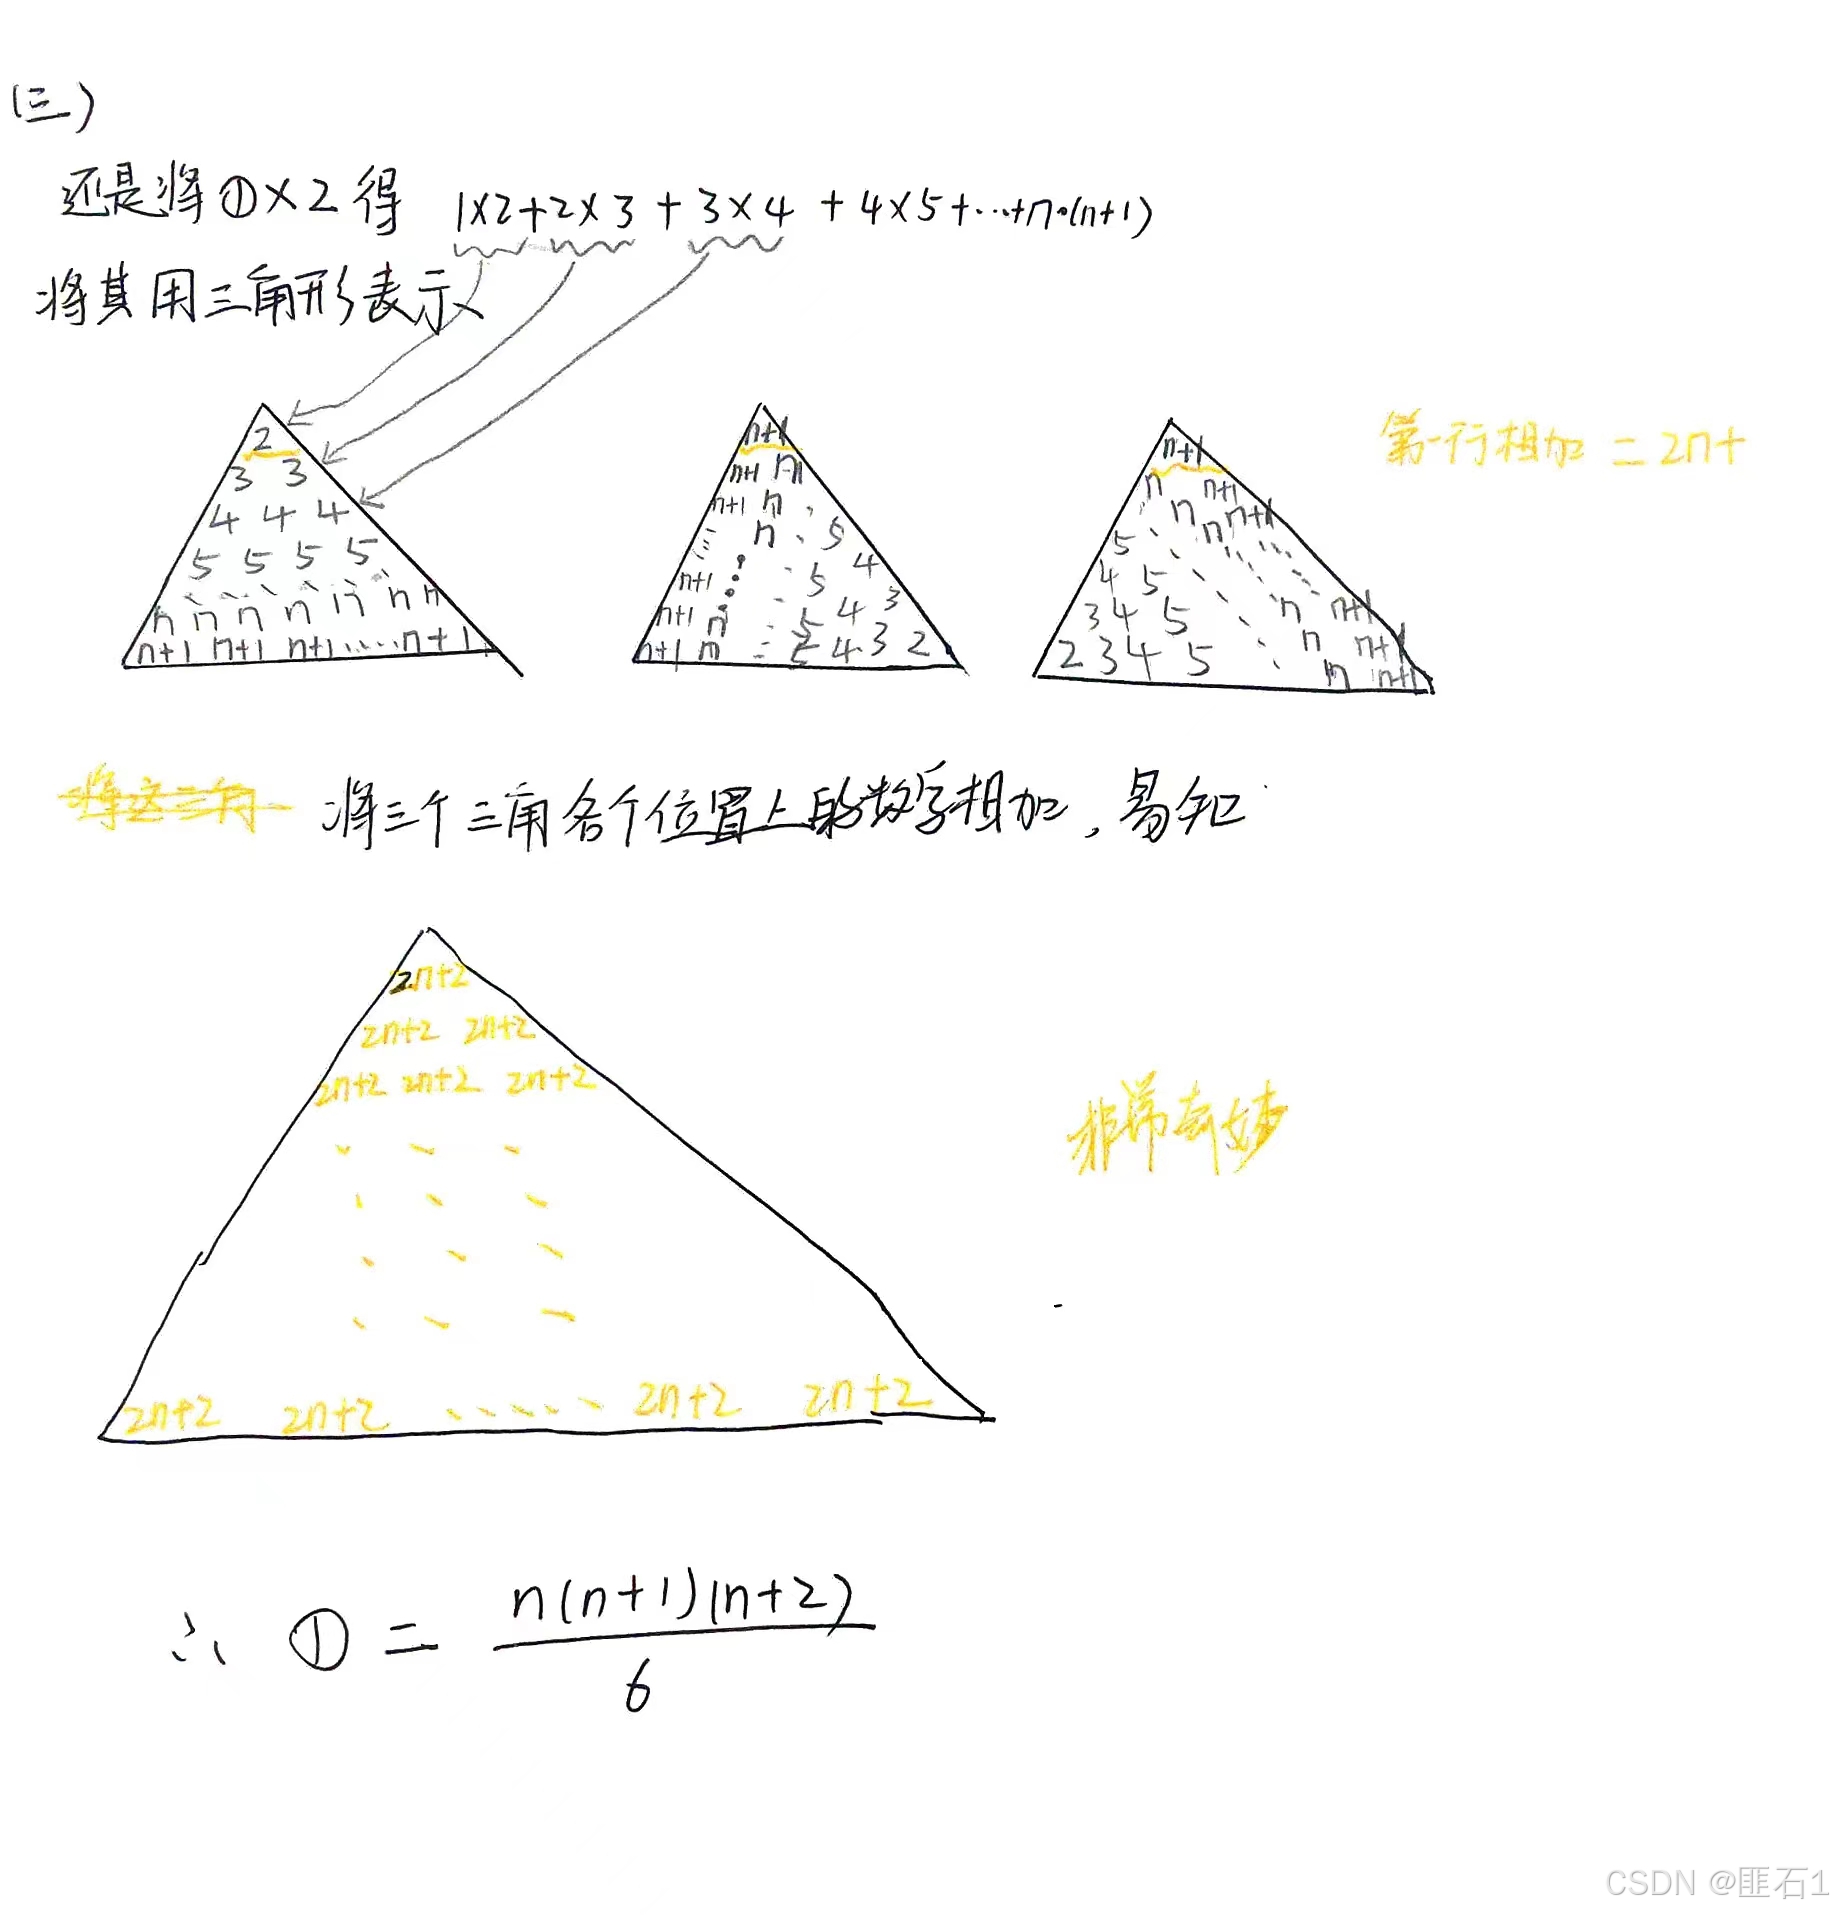 (三)
还是将①×2得 1×2+2×3+3×4+4×5+...+n·(n+1)
将其用三角形表示
2
3 3
4 4 4
5 5 5 5
n n n n n n n
n+1 n+1 n+1 ..... n+1
n+1
n+1 n
n+1 n
n 5
5 4
n+1
n+1 n 5 4 3
n+1 n 5 4 3 2
n+1
n n+1
n n+1
5 n
4 5
3 4 5 n n+1
2 3 4 5 n n+1
n n+1
第一行相加=2n+
将这三角
将三个三角各个位置上的数字相加,易知
2n+2
2n+2 2n+2
2n+2 2n+2 2n+2
2n+2 2n+2 ..... 2n+2 2n+2
非常奇妙
∴ ① = n(n+1)(n+2)
6
CSDN @匪石1